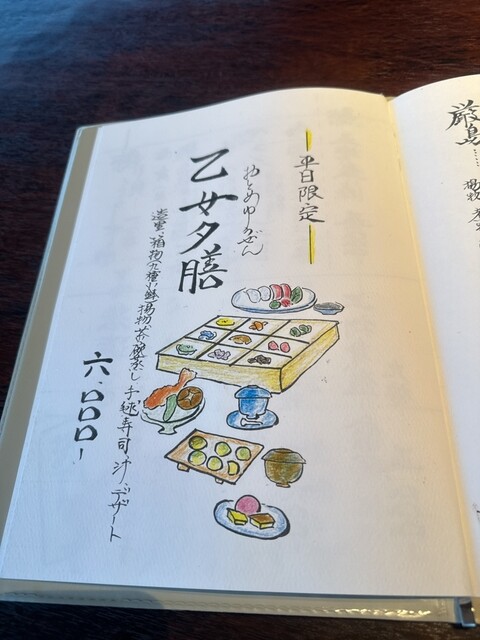 平日限定
おとめゆうぜん
乙女夕膳
造里、箱物(九種)小鉢、揚物、茶碗蒸し、手毬寿司、汁、デザート
六、〇〇〇ー
厳島……
揚物